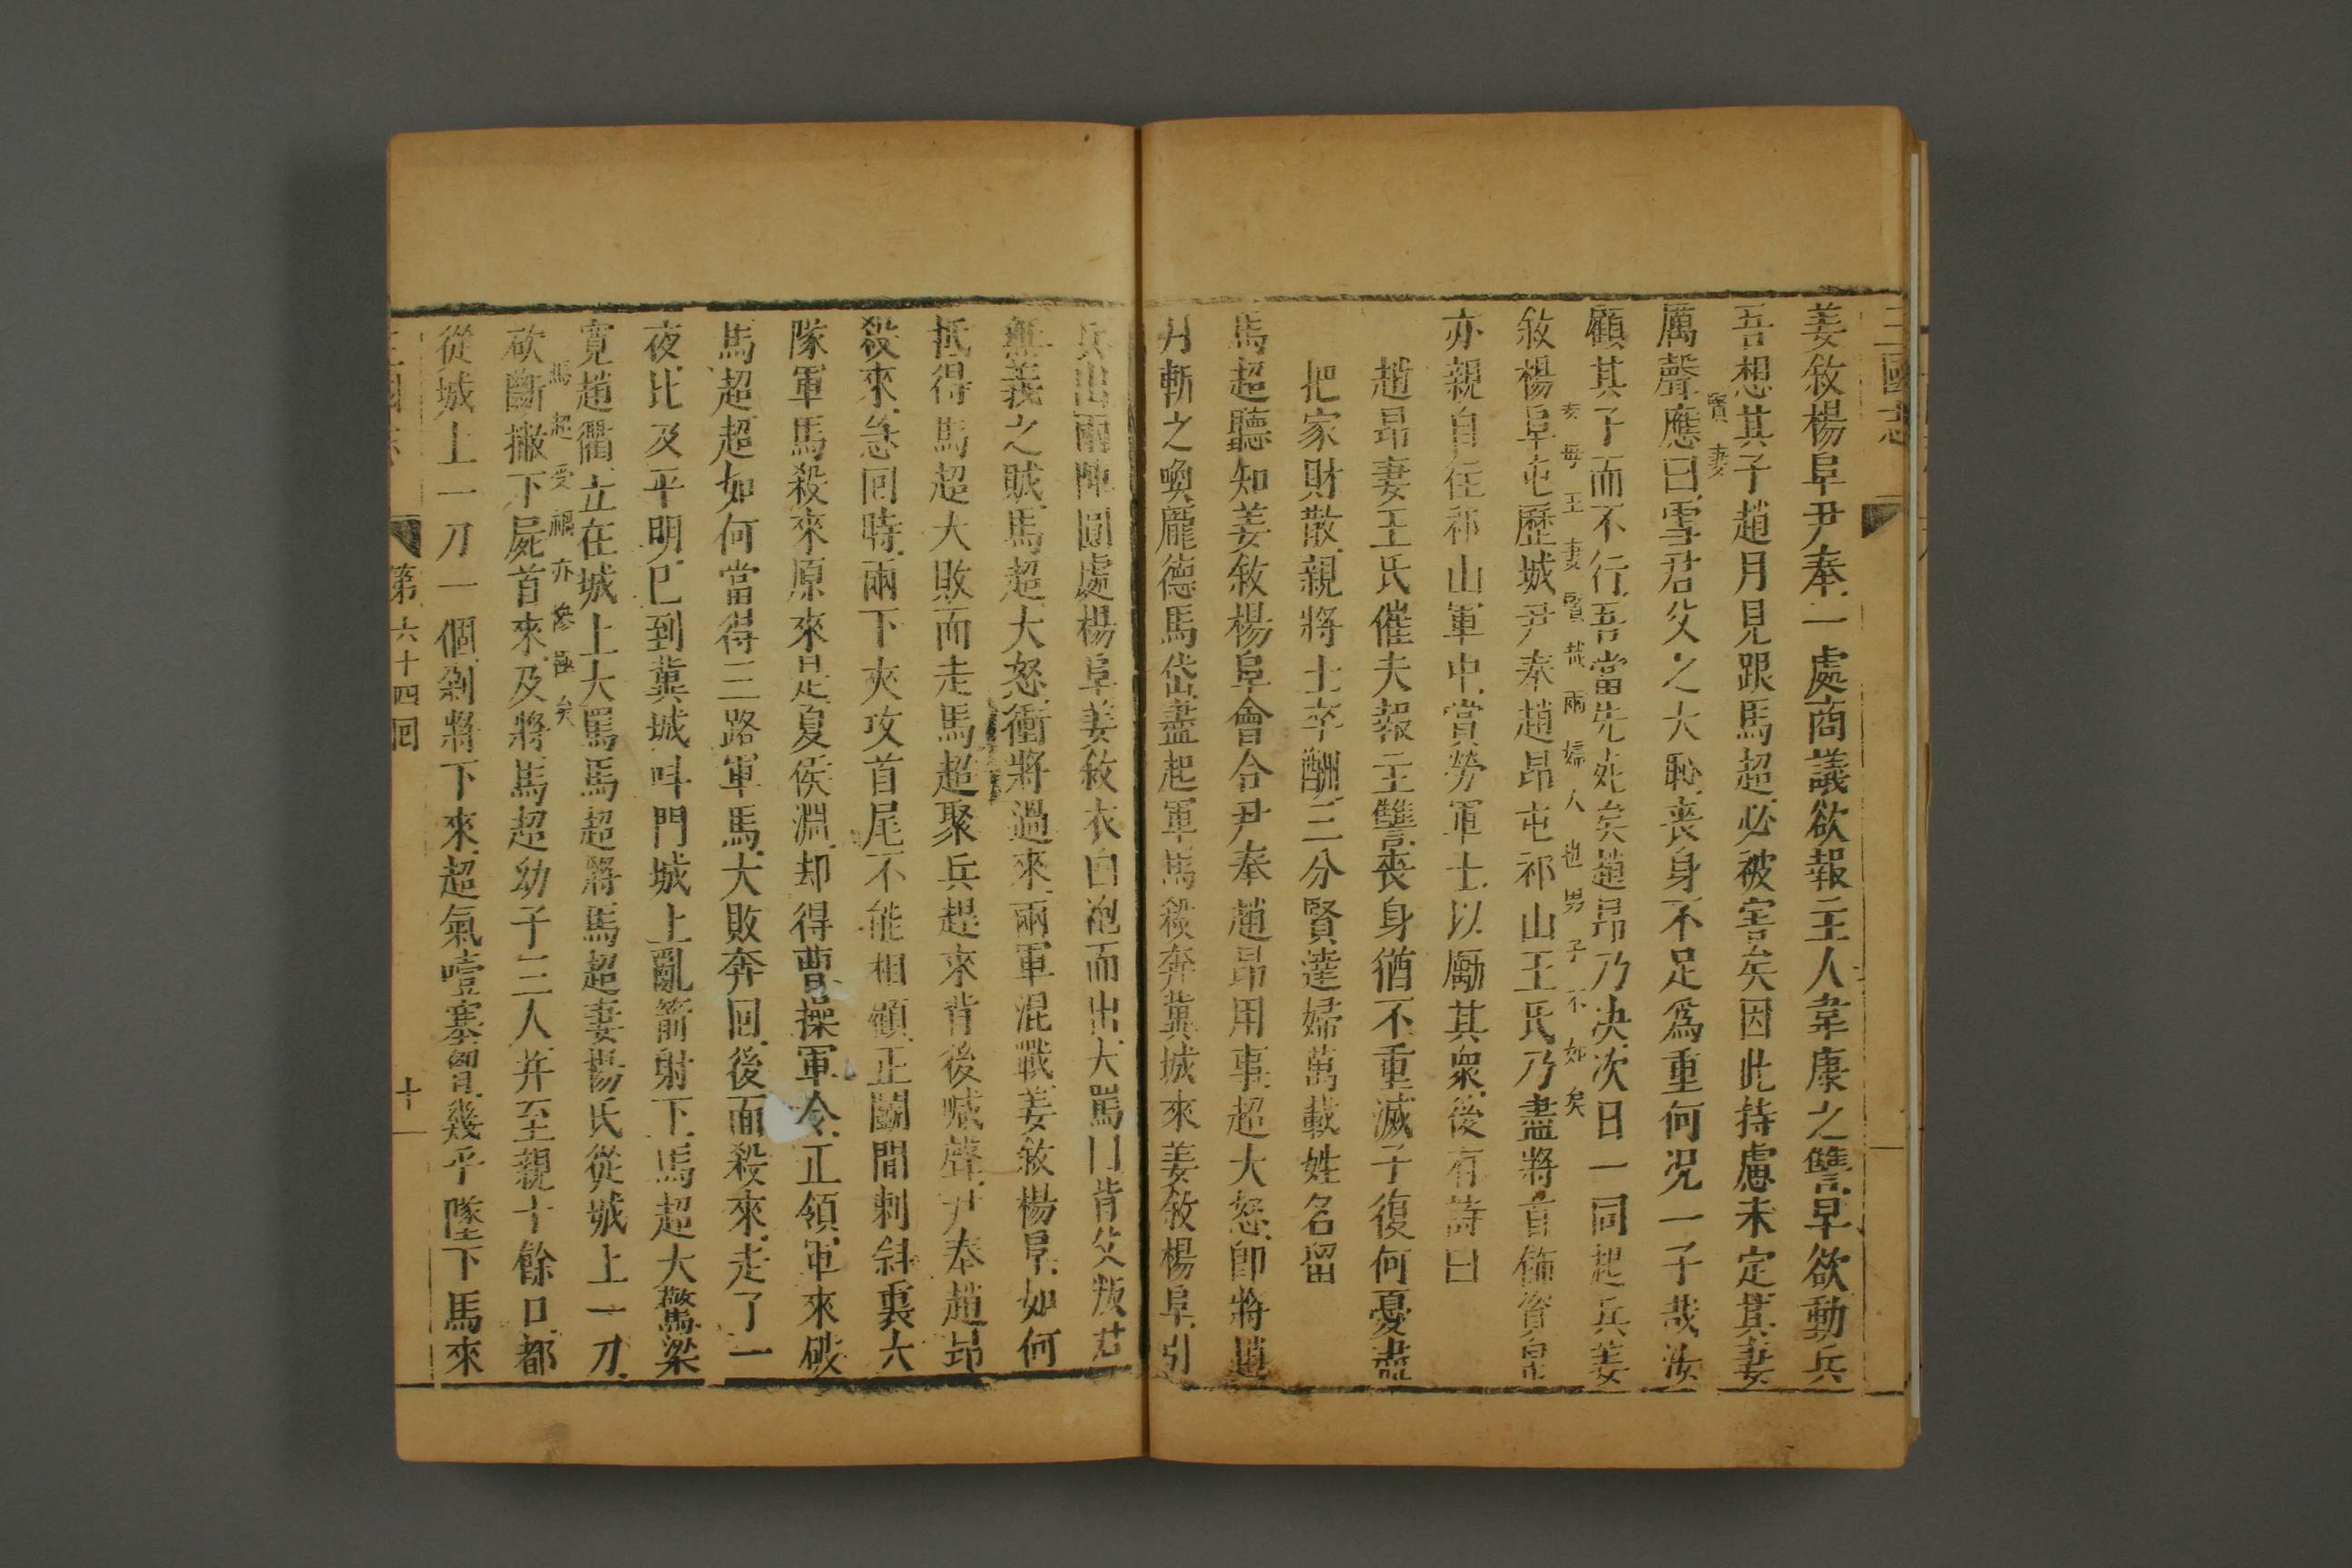 三國志
姜敘楊阜尹奉一處商議欲報主人韋康之讐早欲動兵
吾想其子趙月見跟馬超必被害矣因此持慮未定其妻
賢妻
厲聲應曰雪君父之大恥喪身不足爲重何况一子哉汝
顧其子而不行吾當先死矣趙昂乃决次日一同起兵姜
姜母王妻賢哉兩婦人也男子不如矣
敘楊阜屯歷城尹奉趙昂屯祁山王氏乃盡將首飾資帛
亦親自往祁山軍中賞勞軍士以勵其衆後有詩曰
趙昂妻王氏催夫報主讐喪身猶不重滅子復何憂盡
把家財散親將士卒酬三分賢達婦萬載姓名留
馬超聽知姜敘楊阜會合尹奉趙昂用事超大怒卽將趙
月斬之喚龐德馬岱盡起軍馬殺奔冀城來姜敘楊阜引
兵出兩陣圓處楊阜姜敘衣白袍而出大罵曰背父叛君
無義之賊馬超大怒衝將過來兩軍混戰姜敘楊阜如何
抵得馬超大敗而走馬超聚兵趕來背後喊聲尹奉趙昂
殺來急回時兩下夾攻首尾不能相顧正鬭間刺斜裏大
隊軍馬殺來原來是夏侯淵却得曹操軍令正領軍來破
馬超超如何當得三路軍馬大敗奔回後面殺來走了一
夜比及平明已到冀城呌門城上亂箭射下馬超大驚梁
寛趙衢立在城上大罵馬超將馬超妻楊氏從城上一刀
馬超受禍亦慘極矣
砍斷撇下屍首來及將馬超幼子三人并至親十餘口都
從城上一刀一個剁將下來超氣噎塞胷幾乎墜下馬來
第六十四回
十一